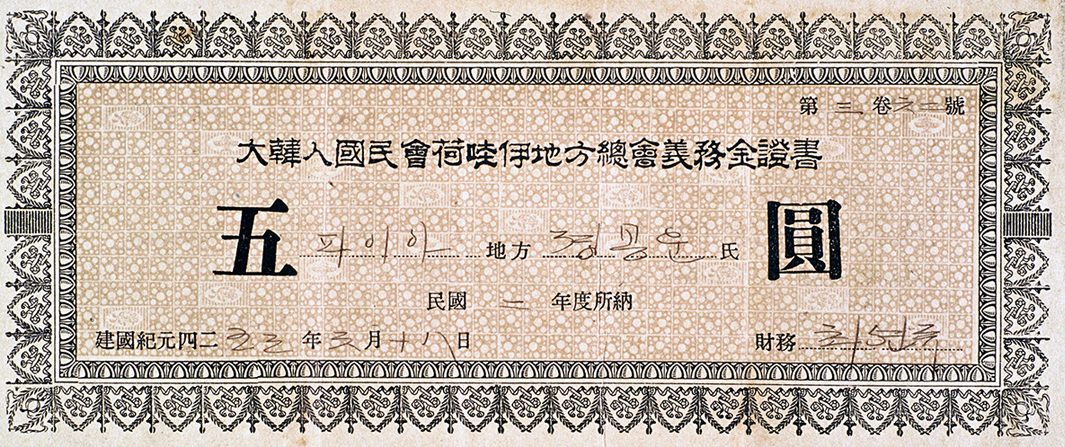 第 三 卷 之二 號
大韓人國民會荷哇伊地方總會義務金證書
五 파이아 地方 氏 圓
民國 二 年度所納
建國紀元四二五三 年 三 月 十八 日 財務